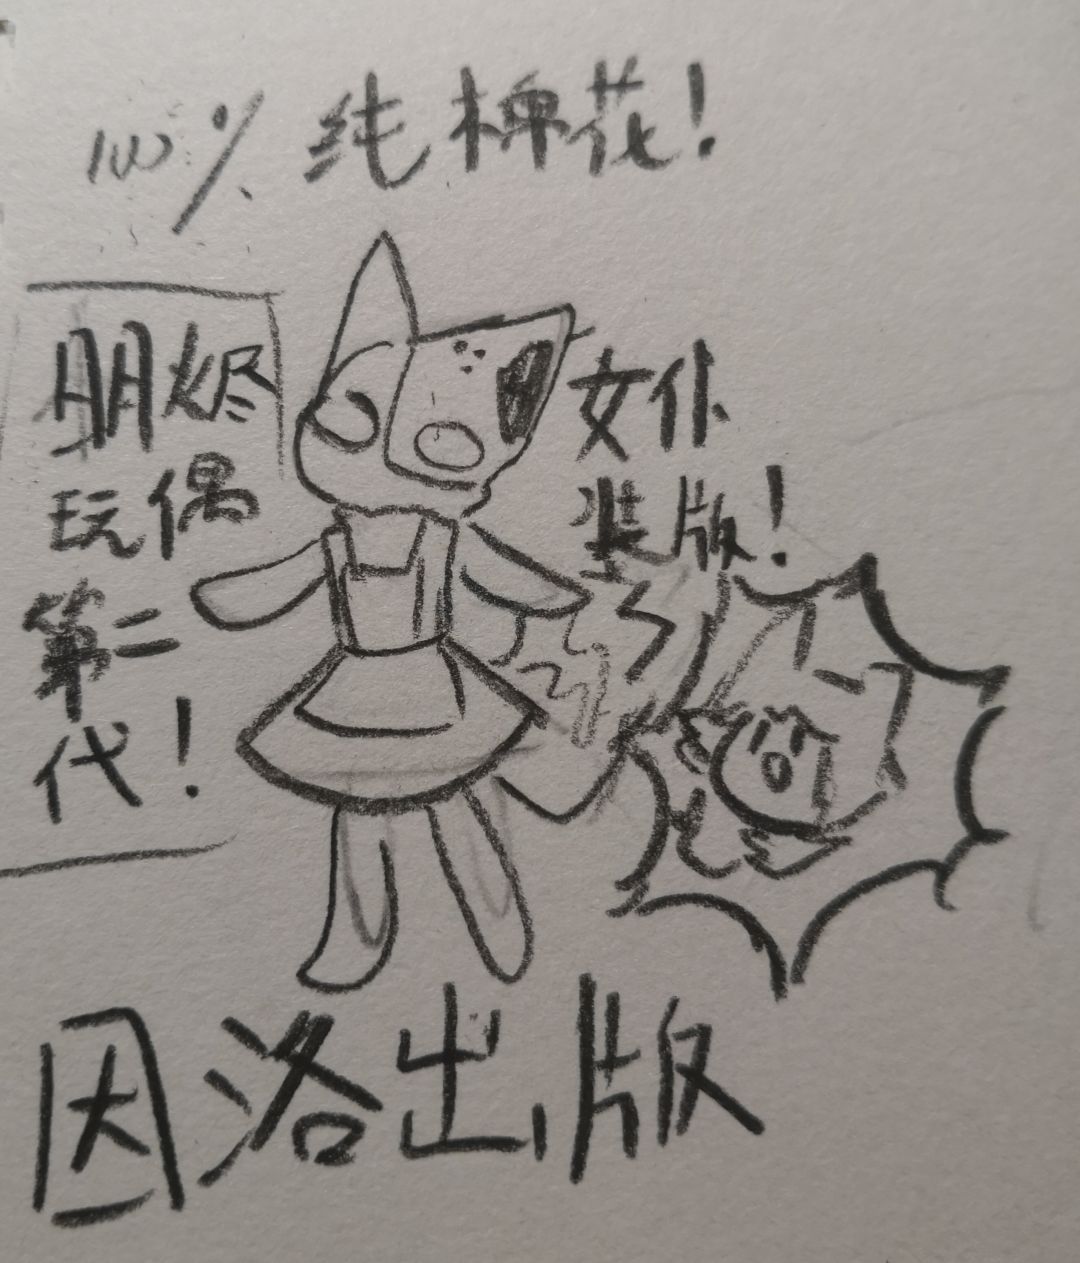 100% 纯棉花!
朋烬
玩偶
第二
代!
女仆
装版!
因洛出版